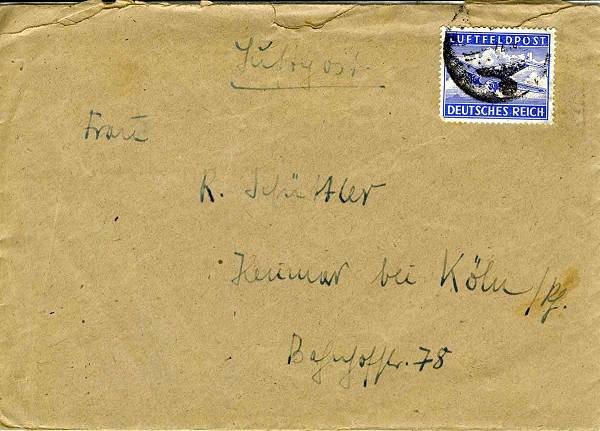 Luftpost
LUFTFELDPOST
DEUTSCHES REICH
Frau
R. Schüttler
Heumar bei Köln/Rh.
Bahnhofstr. 78